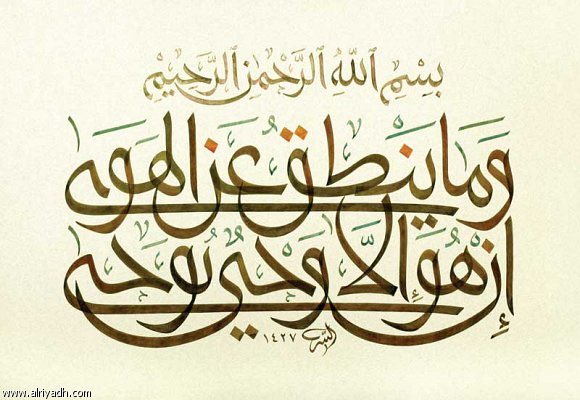 بِسْمِ ٱللَّهِ ٱلرَّحْمٰنِ ٱلرَّحِيمِ
وَمَا يَنطِقُ عَنِ الْهَوَىٰ
إِنْ هُوَ إِلَّا وَحْيٌ يُوحَىٰ
١٤٢٧
www.alriyadh.com